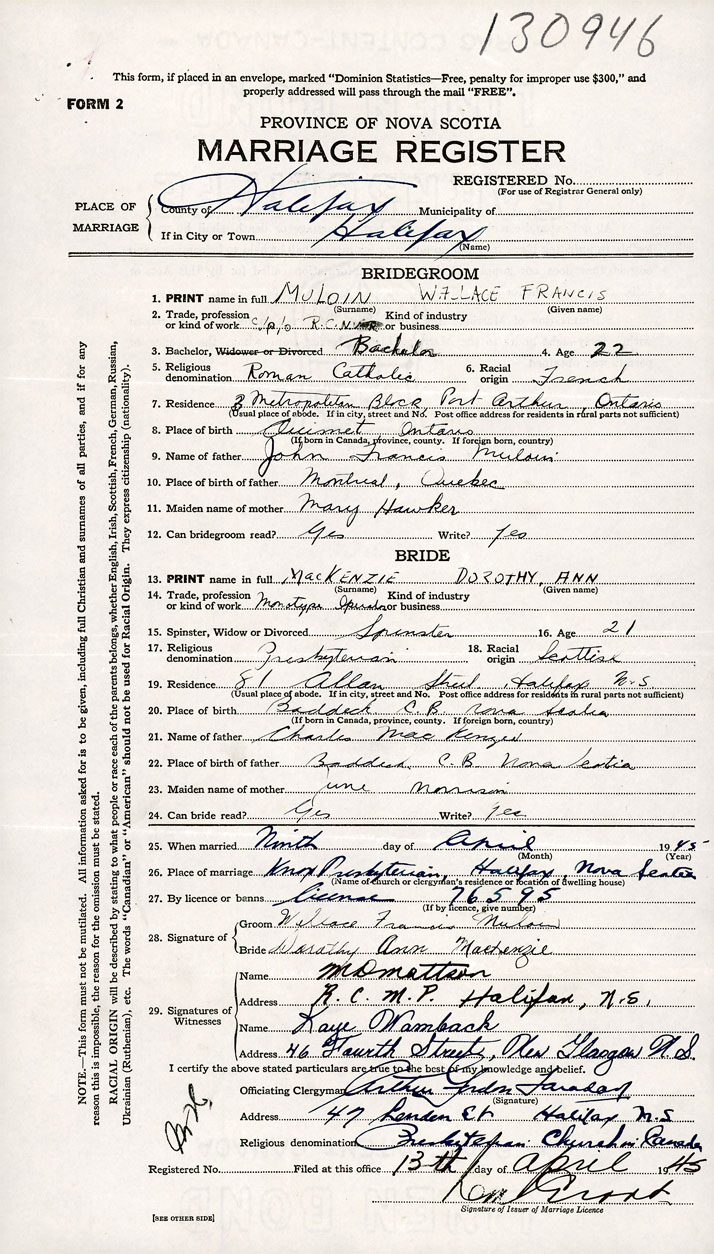 130946
This form, if placed in an envelope, marked "Dominion Statistics—Free, penalty for improper use $300," and
properly addressed will pass through the mail "FREE".
FORM 2
PROVINCE OF NOVA SCOTIA
MARRIAGE REGISTER
REGISTERED No.
(For use of Registrar General only)
PLACE OF MARRIAGE
County of Halifax Municipality of
If in City or Town Halifax
(Name)
BRIDEGROOM
1. PRINT name in full MULOIN WALLACE FRANCIS
(Surname) (Given name)
2. Trade, profession or kind of work c/p/o R.C.N.V.R. Kind of industry or business
3. Bachelor, Widower or Divorced Bachelor 4. Age 22
5. Religious denomination Roman Catholic 6. Racial origin French
7. Residence 3 Metropolitan Block Port Arthur, Ontario
(Usual place of abode. If in city, street and No. Post office address for residents in rural parts not sufficient)
8. Place of birth Ouimet Ontario
(If born in Canada, province, county. If foreign born, country)
9. Name of father John Francis Muloin
10. Place of birth of father Montreal, Quebec
11. Maiden name of mother Mary Hawker
12. Can bridegroom read? Yes Write? Yes
BRIDE
13. PRINT name in full MACKENZIE DOROTHY, ANN
(Surname) (Given name)
14. Trade, profession or kind of work Monotype Operator Kind of industry or business
15. Spinster, Widow or Divorced Spinster 16. Age 21
17. Religious denomination Presbyterian 18. Racial origin Scottish
19. Residence 81 Allan Street Halifax N.S
(Usual place of abode. If in city, street and No. Post office address for residents in rural parts not sufficient)
20. Place of birth Baddeck C.B. Nova Scotia
(If born in Canada, province, county. If foreign born, country)
21. Name of father Charles MacKenzie
22. Place of birth of father Baddeck C.B. Nova Scotia
23. Maiden name of mother June Morrison
24. Can bride read? Yes Write? Yes
25. When married Ninth day of April 1945
(Month) (Year)
26. Place of marriage Knox Presbyterian, Halifax, Nova Scotia
(Name of church or clergyman's residence or location of dwelling house)
27. By licence or banns license 76595
(If by licence, give number)
28. Signature of
Groom Wallace Francis Muloin
Bride Dorothy Ann MacKenzie
29. Signatures of Witnesses
Name M D Mattson
Address R.C.M.P. Halifax, N.S.
Name Kaye Wamback
Address 46 Fourth Street, New Glasgow N.S.
I certify the above stated particulars are true to the best of my knowledge and belief.
Officiating Clergyman Arthur
(Signature)
Address 47 London St Halifax N.S
Religious denomination Presbyterian Church in Canada
Registered No. Filed at this office 13th day of April 1945
Signature of Issuer of Marriage Licence
[SEE OTHER SIDE]
NOTE.—This form must not be mutilated. All information asked for is to be given, including full Christian and surnames of all parties, and if for any
reason this is impossible, the reason for the omission must be stated.
RACIAL ORIGIN will be described by stating to what people or race each of the parents belongs, whether English, Irish, Scottish, French, German, Russian,
Ukrainian (Ruthenian), etc. The words "Canadian" or "American" should not be used for Racial Origin. They express citizenship (nationality).